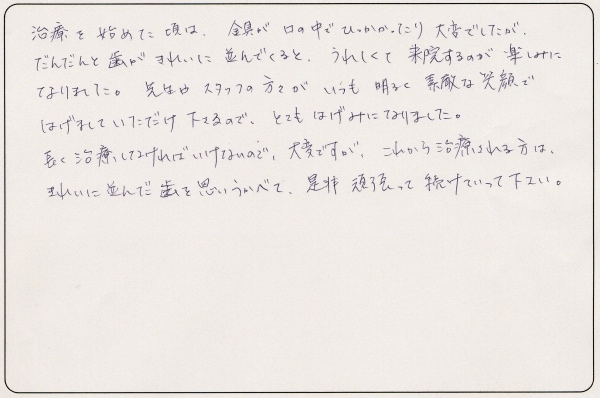 治療を始めた頃は、金具が口の中でひっかかったり大変でしたが、
だんだんと歯がきれいに並んでくると、うれしくて来院するのが楽しみに
なりました。先生やスタッフの方々がいつも明るく素敵な笑顔で
はげましていただけ下さるので、とてもはげみになりました。
長く治療しなければいけないので、大変ですが、これから治療される方は、
きれいに並んだ歯を思いうかべて、是非頑張って続けていって下さい。